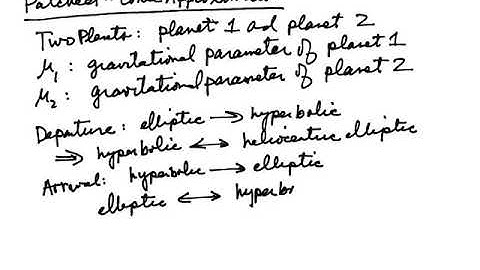 Patched - Conic Approximation
Two Planets: planet 1 and planet 2
μ₁: gravitational parameter of planet 1
μ₂: gravitational parameter of planet 2
Departure: elliptic → hyperbolic
⇒ hyperbolic ↔ heliocentric elliptic
Arrival: hyperbolic → elliptic
elliptic ↔ hyperbo